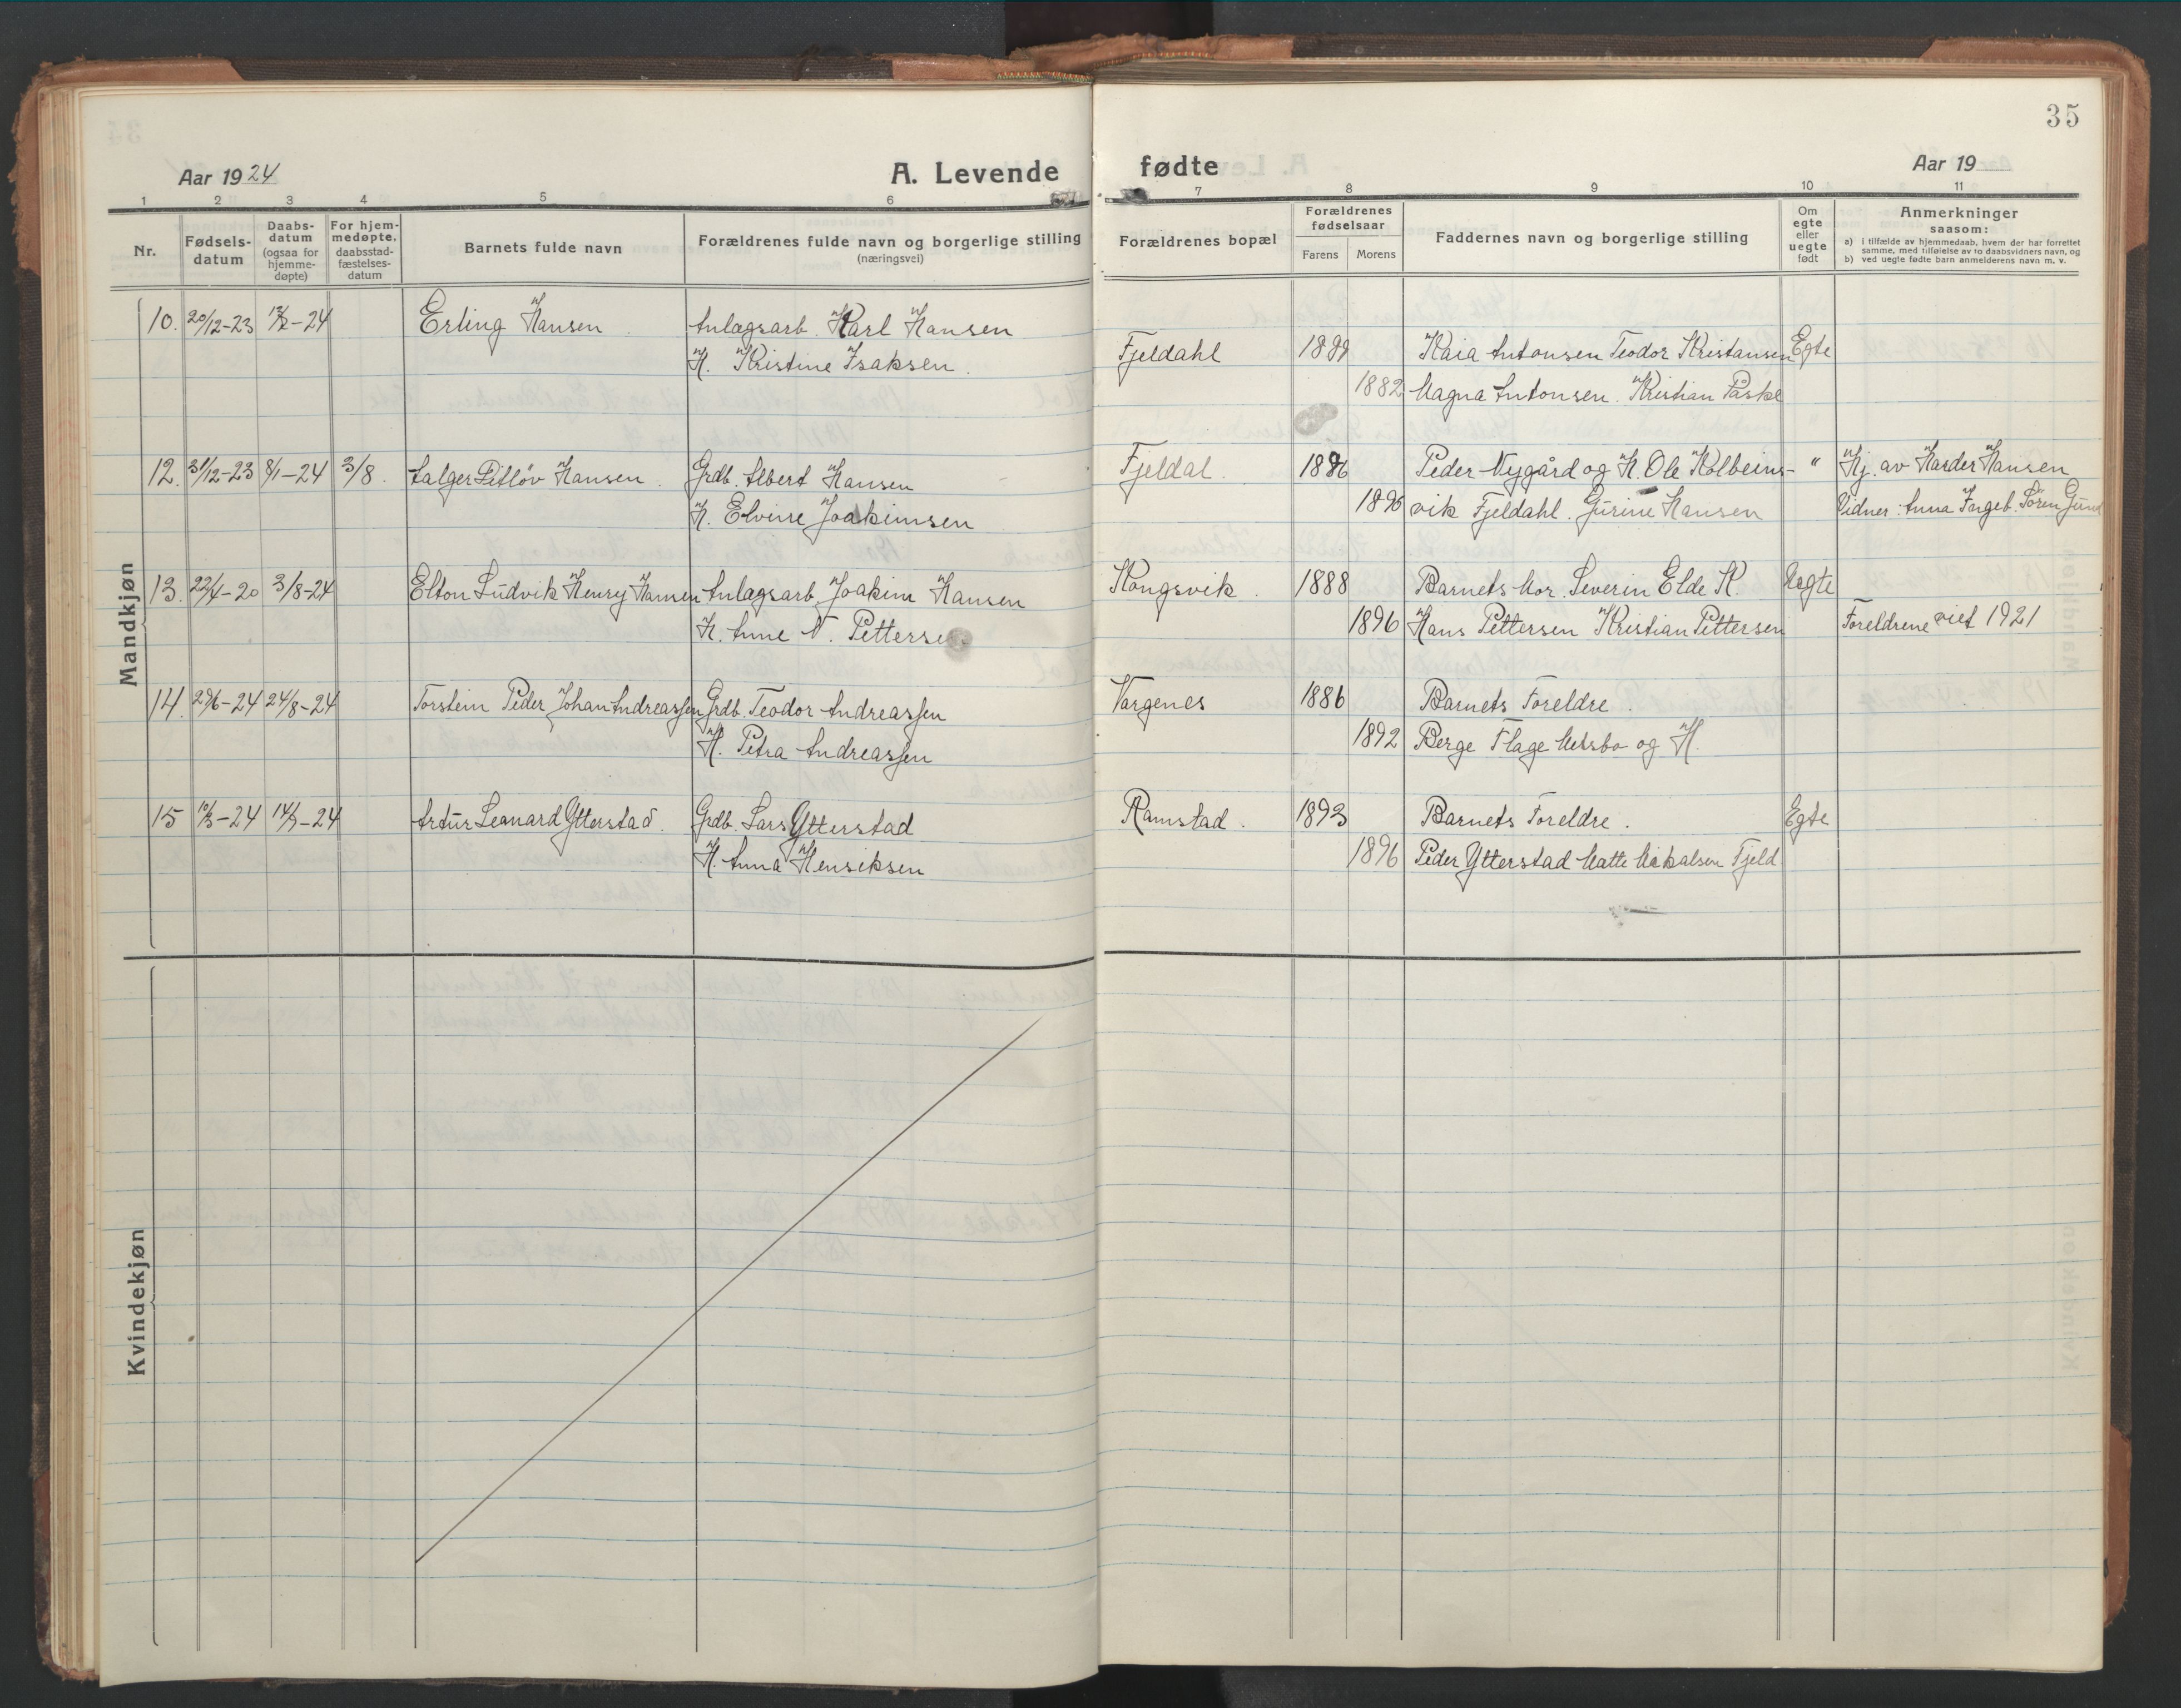 35
Aar 1924
A. Levende
fødte
Aar 19
1 2 3 4 5 6
7 8 9 10 11
Nr.
Fødsels-
datum
Daabs-
datum
(ogsaa for
hjemme-
døpte)
For hjem-
medøpte,
daabsstad-
fæstelses-
datum
Barnets fulde navn
Forældrenes fulde navn og borgerlige stilling
(næringsvei)
Forældrenes bopæl
Forældrenes
fødselsaar
Farens Morens
Faddernes navn og borgerlige stilling
Om
egte
eller
uegte
født
Anmerkninger
saasom:
a) i tilfælde av hjemmedaab, hvem der har forrettet
samme, med tilføielse av to daabsvidners navn, og
b) ved uegte fødte barn anmelderens navn m. v.
Mandkjøn
10. 20/12-23 -24 Erling Hansen Anlægsarb. Karl Hansen
H. Kristine Isaksen.
Fjeldahl Kaia Antonsen Teodor Kristansen Egte
1882 Magna Antonsen. Kristian Paske
12. 31/12-23 8/1-24 3/8. Hansen. Grdb. Albert Hansen
H. Elvine Joakimsen
Fjeldal. 1886 Peder Nygård og H. Ole Kolbeins- " Hj. av Harder Hansen
1896 vik Fjeldahl. Gurine Hansen Vidner: Anna Ingeb. Sören
13. 22/4-20 3/8-24 Elton Ludvik Henry Hansen Anlægsarb. Joakim Hansen
H. Anne N. Petterse
Kongsvik. 1888 Barnets Mor. Severin Elde K. Uegte
1896 Hans Pettersen Kristian Pettersen Foreldrene viet 1921
14. 29/6-24 24/8-24 Torstein Peder Johan Andreassen Grdb. Teodor Andreassen
H. Petra Andreassen
Vargenes 1886 Barnets Foreldre.
1892 Berge Flage og H.
15 -24 14/9-24 Artur Leonard Ytterstad. Grdb. Lars Ytterstad
H. Anna Henriksen
Ramstad. 1893 Barnets Foreldre. Egte
1896 Peder Ytterstad Matte Mikalsen Fjeld
Kvindekjøn